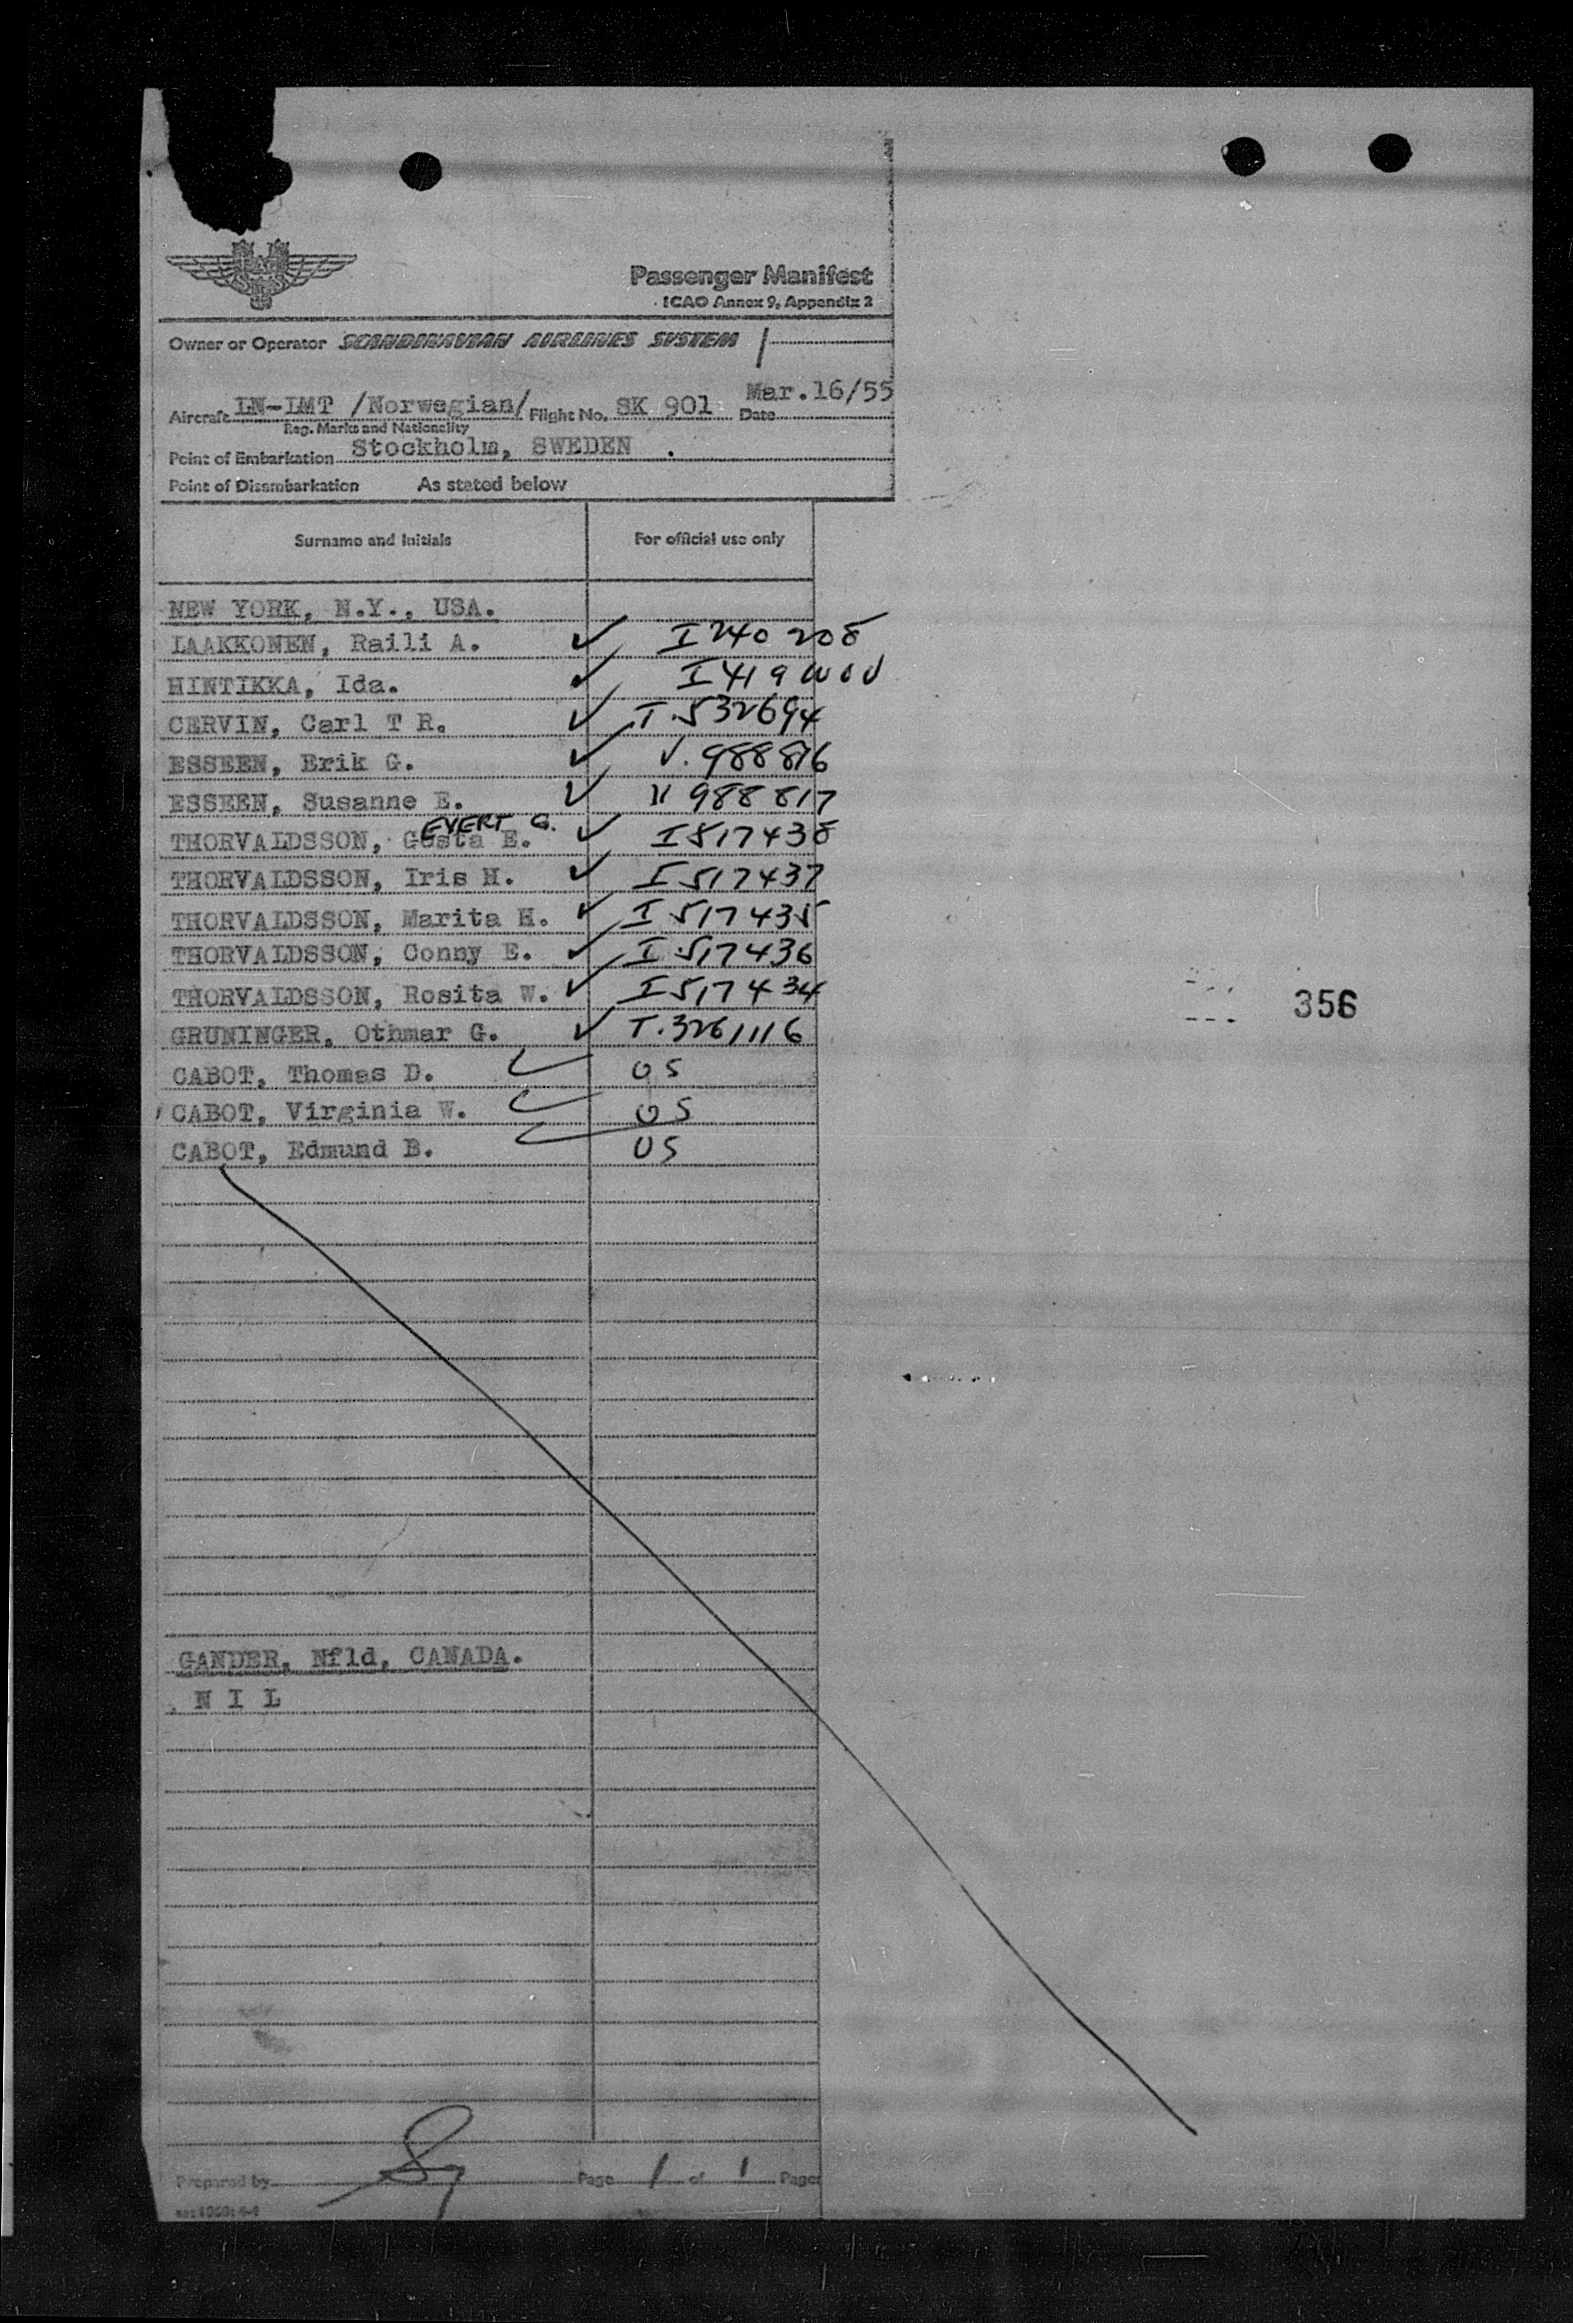 Passenger Manifest
ICAO Annex 9, Appendix 2
Owner or Operator SCANDINAVIAN AIRLINES SYSTEM
Mar.16/55
Aircraft LN-LMT /Norwegian/ Flight No. SK 901 Date
Reg. Marks and Nationality
Point of Embarkation Stockholm, SWEDEN .
Point of Disembarkation As stated below
Surname and Initials For official use only
NEW YORK, N.Y., USA.
LAAKKONEN, Raili A. ✓ I 240 208
HINTIKKA, Ida. ✓ I 419
CERVIN, Carl T R. ✓ I.532694
ESSEEN, Erik G. ✓ V. 988816
ESSEEN, Susanne E. ✓ 988817
EVERT G.
THORVALDSSON, Gosta E. ✓ I 517438
THORVALDSSON, Iris H. ✓ I 517437
THORVALDSSON, Marita H. ✓ I 517435
THORVALDSSON, Conny E. ✓ I 517436
THORVALDSSON, Rosita W. ✓ I 517434
356
GRUNINGER, Othmar G. ✓ T.3261116
CABOT, Thomas D. ✓ US
CABOT, Virginia W. ✓ US
CABOT, Edmund B. ✓ US
GANDER, Nfld, CANADA.
N I L
Prepared by Page 1 of 1 Pages